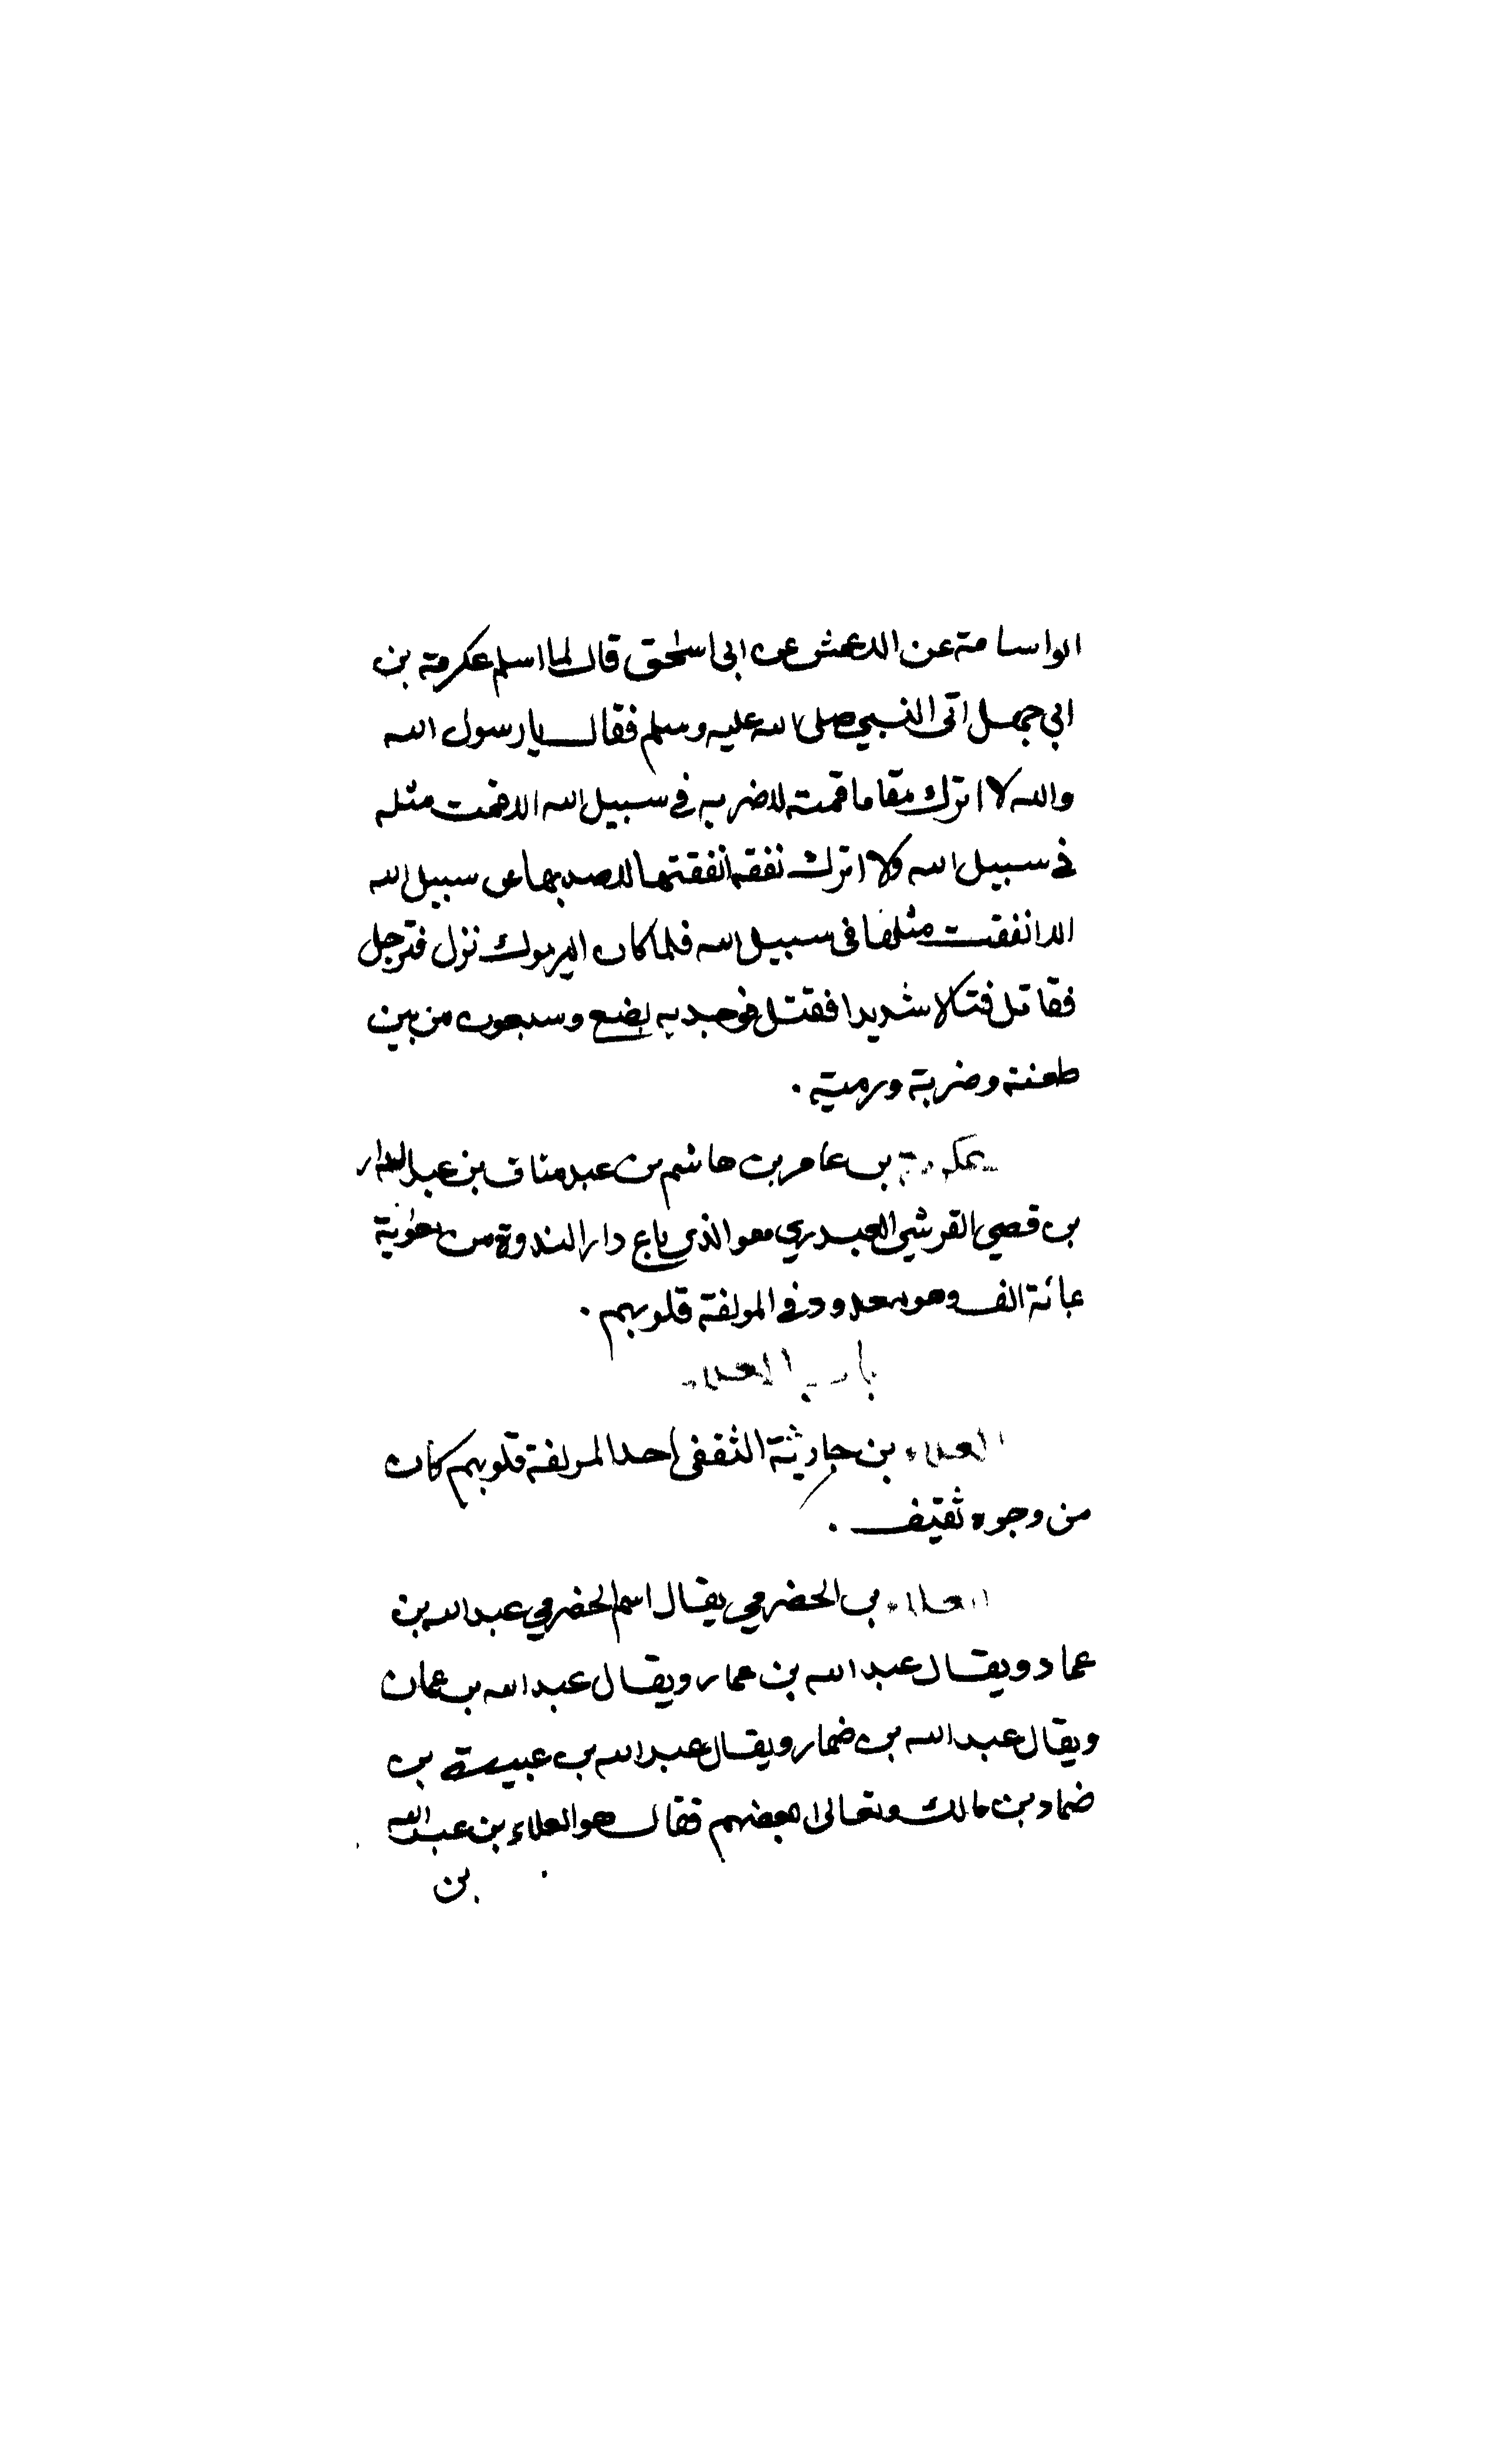 ابو اسامة عن الاعمش عن ابى اسحق قال لما اسلم عكرمة بن
ابي جهل اتى النبي صلى الله عليه وسلم فقال يا رسول الله
والله لا اترك مقاما قمته لاضر به في سبيل الله الا قمت مثله
في سبيل الله ولا اترك نفقة انفقتها لاصد بها عن سبيل الله
الا انفقت مثلها فى سبيل الله فلما كان اليرموك نزل فترجل
فقاتل قتالا شديدا فقتل فوجد به بضع وسبعون من بين
طعنة وضربة ورمية .
عكرمة بن عامر بن هاشم بن عبد مناف بن عبد الدار
بن قصي القرشي العبدري هو الذي باع دار الندوة من معوية
بمائة الف وهو معدود في المولفة قلوبهم .
باب العلاء
العلاء بن جارية الثقفى احد المولفة قلوبهم كان
من وجوه ثقيف .
العلاء بن الحضرمي يقال اسم الحضرمي عبد الله بن
عماد ويقال عبد الله بن عمار ويقال عبد الله بن عمان
ويقال عبد الله بن ضمار ويقال عبد الله بن عبيدة بن
ضماد بن مالك وتعالى بعضهم فقال هو العلاء بن عبد الله
بن